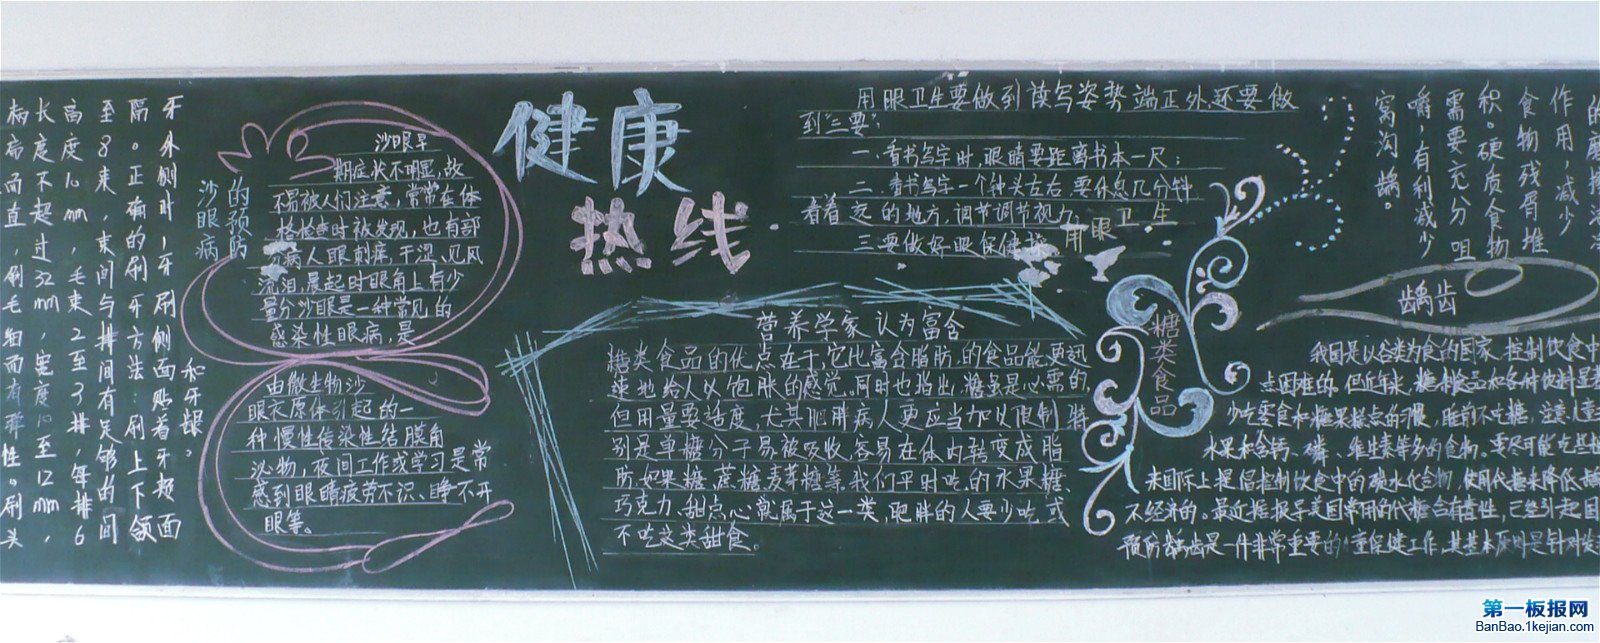 健康
热线
沙眼病
的预防
沙眼早
期症状不明显,故
不易被人们注意,常常在体
格检查时被发现,也有部
分病人眼刺痒,干涩、见风
流泪,晨起时眼角上有少
量分沙眼是一种常见的
感染性眼病,是
由微生物沙
眼衣原体引起的一
种慢性传染性结膜角
泌物,夜间工作或学习是常
感到眼睛疲劳不识、睁不开
眼等。
用眼卫生要做到读写姿势端正外,还要做
到“三要”:
一.看书写字时,眼睛要距离书本一尺;
二.看书写字一个钟头左右要休息几分钟
看看远的地方,调节调节视力
三要做好眼保健操
用眼卫生
营养学家认为富含
糖类食品的优点在于,它比富含脂肪的食品能更迅
速地给人以饱胀的感觉。同时也指出,糖虽是必需的,
但用量要适度,尤其肥胖病人更应当加以限制,特
别是单糖分子易被吸收,容易在体内转变成脂
肪,如果糖、蔗糖、麦芽糖等,我们平时吃的水果糖、
巧克力、甜点心就属于这一类,肥胖的人要少吃,或
不吃这类甜食。
糖类食品
和牙龈。
牙外侧时,牙刷侧面贴着牙颊面
隔。正确的刷牙方法:刷上下颌
至8束,束间与排间有足够的间
高度10mm,毛束2至3排,每排6
长度不超过32mm,宽度10至12mm,
病而直,刷毛细而有弹性。刷头
作用,减少
食物残屑堆
积。硬质食物
需要充分咀
嚼,有利减少
窝沟龋。
龋齿
我国是以谷类为食的国家,控制饮食中
困难的。但近年来,糖制食品和各种饮料
少吃零食和糖果糕点的习惯,睡前不吃糖,注意儿童
水果和含钙、磷、维生素等多的食物。要尽可能在
来国际上提倡控制饮食中的碳水化合物,使用代糖来降低
不经济的。最近据报导美国常用的代糖含有毒性,已经引起
预防龋齿是一件非常重要的儿童保健工作,其基本原则是针对
第一板报网
BanBao.1kejian.com